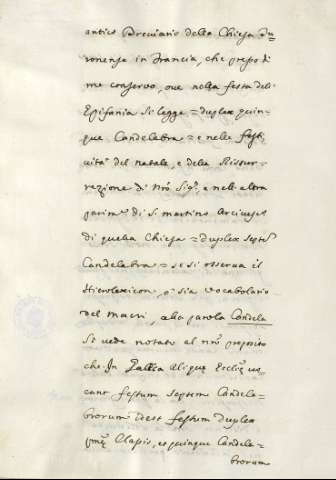 antico Breviario della Chiesa Tu=
ronense in Francia, che presso di
me conservo, ove nella festa dell'
Epifania si legge = duplex quin=
que Candelabra = e nelle festi
vità del natale, e della Rissur=
rezione di nro Sigr, e nell'altra
parimte di S. Martino Arcivesc.
di quella Chiesa = duplex septe
Candelabra = se si osserva il
Hierolexicon, o sia vocabolario
del Macri, alla parola Candela
Si vede notato al nro proposito
che In Gallia aliquæ Ecclie vo
cant festum septem Candela=
brorum idest festum duplex
pme Classis, et quinque Candela=
brorum